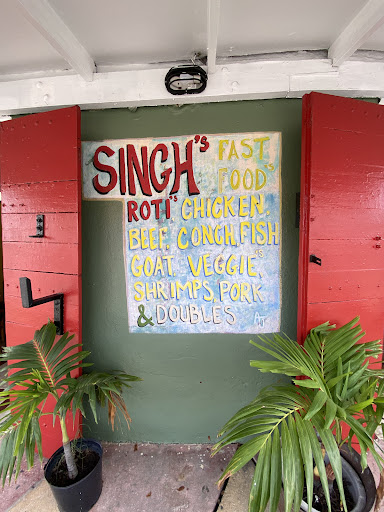 SINGH's FAST
FOOD"
ROTI"S CHICKEN,
BEEF, CONCH, FISH
GOAT, VEGGIE"S
SHRIMPS, PORK
& DOUBLES